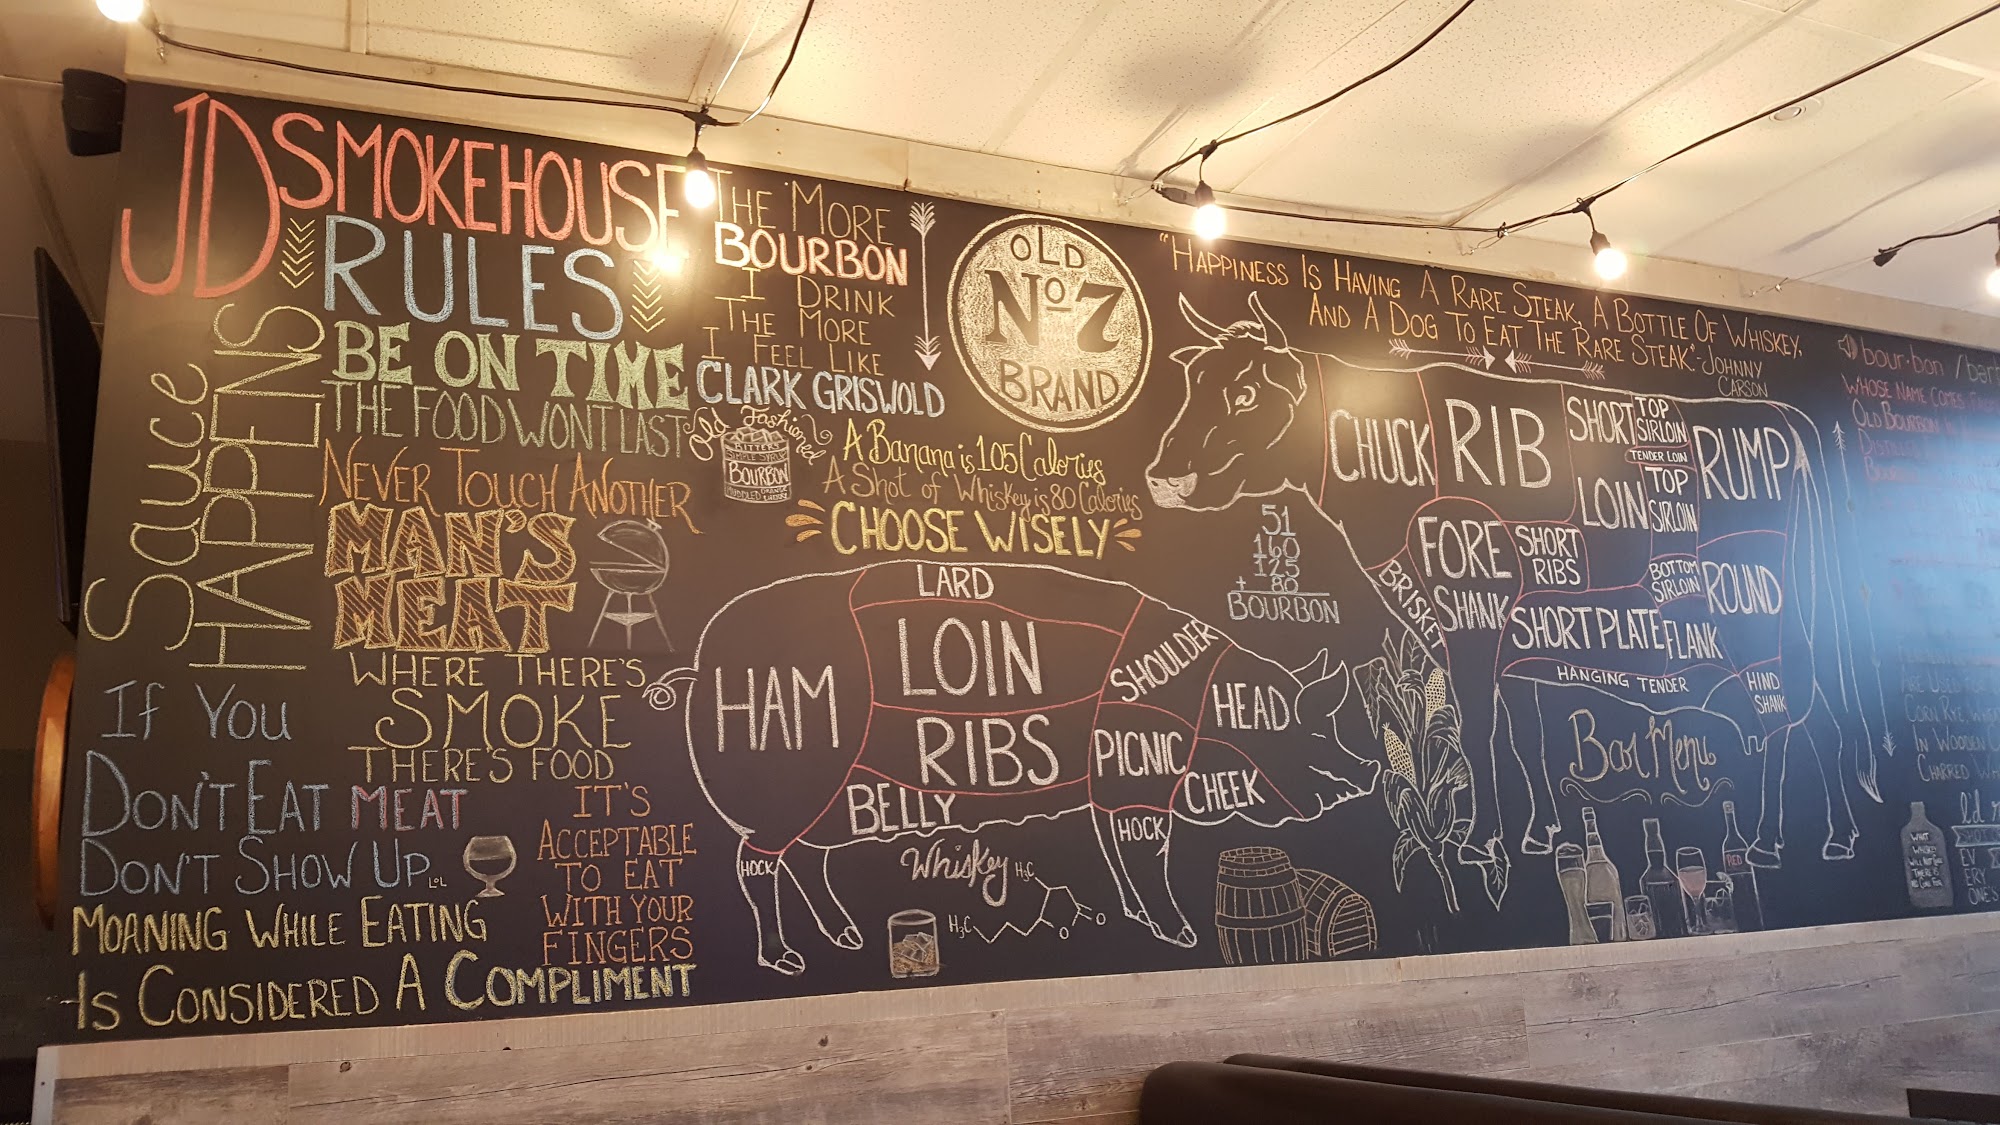 JD SMOKEHOUSE
RULES
Sauce
HAPPENS
BE ON TIME
THE FOOD WONT LAST
NEVER TOUCH ANOTHER
MAN'S
MEAT
WHERE THERE'S
SMOKE
THERE'S FOOD
IF YOU
DON'T EAT MEAT
DON'T SHOW UP LOL
IT'S
ACCEPTABLE
TO EAT
WITH YOUR
FINGERS
MOANING WHILE EATING
IS CONSIDERED A COMPLIMENT
THE MORE
BOURBON
I DRINK
THE MORE
I FEEL LIKE
CLARK GRISWOLD
Old Fashioned
BITTERS
SIMPLE SYRUP
BOURBON
MUDDLED ORANGE
& CHERRY
OLD
No 7
BRAND
A Banana is 105 Calories
A Shot of Whiskey is 80 Calories
CHOOSE WISELY
LARD
LOIN
HAM
RIBS
BELLY
SHOULDER
PICNIC
HEAD
CHEEK
HOCK
HOCK
Whiskey
H3C
H3C
O
O
"HAPPINESS IS HAVING A RARE STEAK, A BOTTLE OF WHISKEY,
AND A DOG TO EAT THE RARE STEAK." - JOHNNY
CARSON
51
160
125
+ 80
BOURBON
CHUCK
RIB
SHORT
LOIN
TOP
SIRLOIN
TENDER LOIN
TOP
SIRLOIN
RUMP
FORE
SHANK
SHORT
RIBS
BOTTOM
SIRLOIN
ROUND
BRISKET
SHORT PLATE
FLANK
HANGING TENDER
HIND
SHANK
Bar Menu
RED
bour·bon
WHOSE NAME COMES
OLD BOURBON
ARE USED
CORN RYE,
IN WOODEN
CHARRED
WHAT
WHISKEY
WILL NOT
THERE IS
NO CURE FOR
I'd
EV
ERY
ONE'S